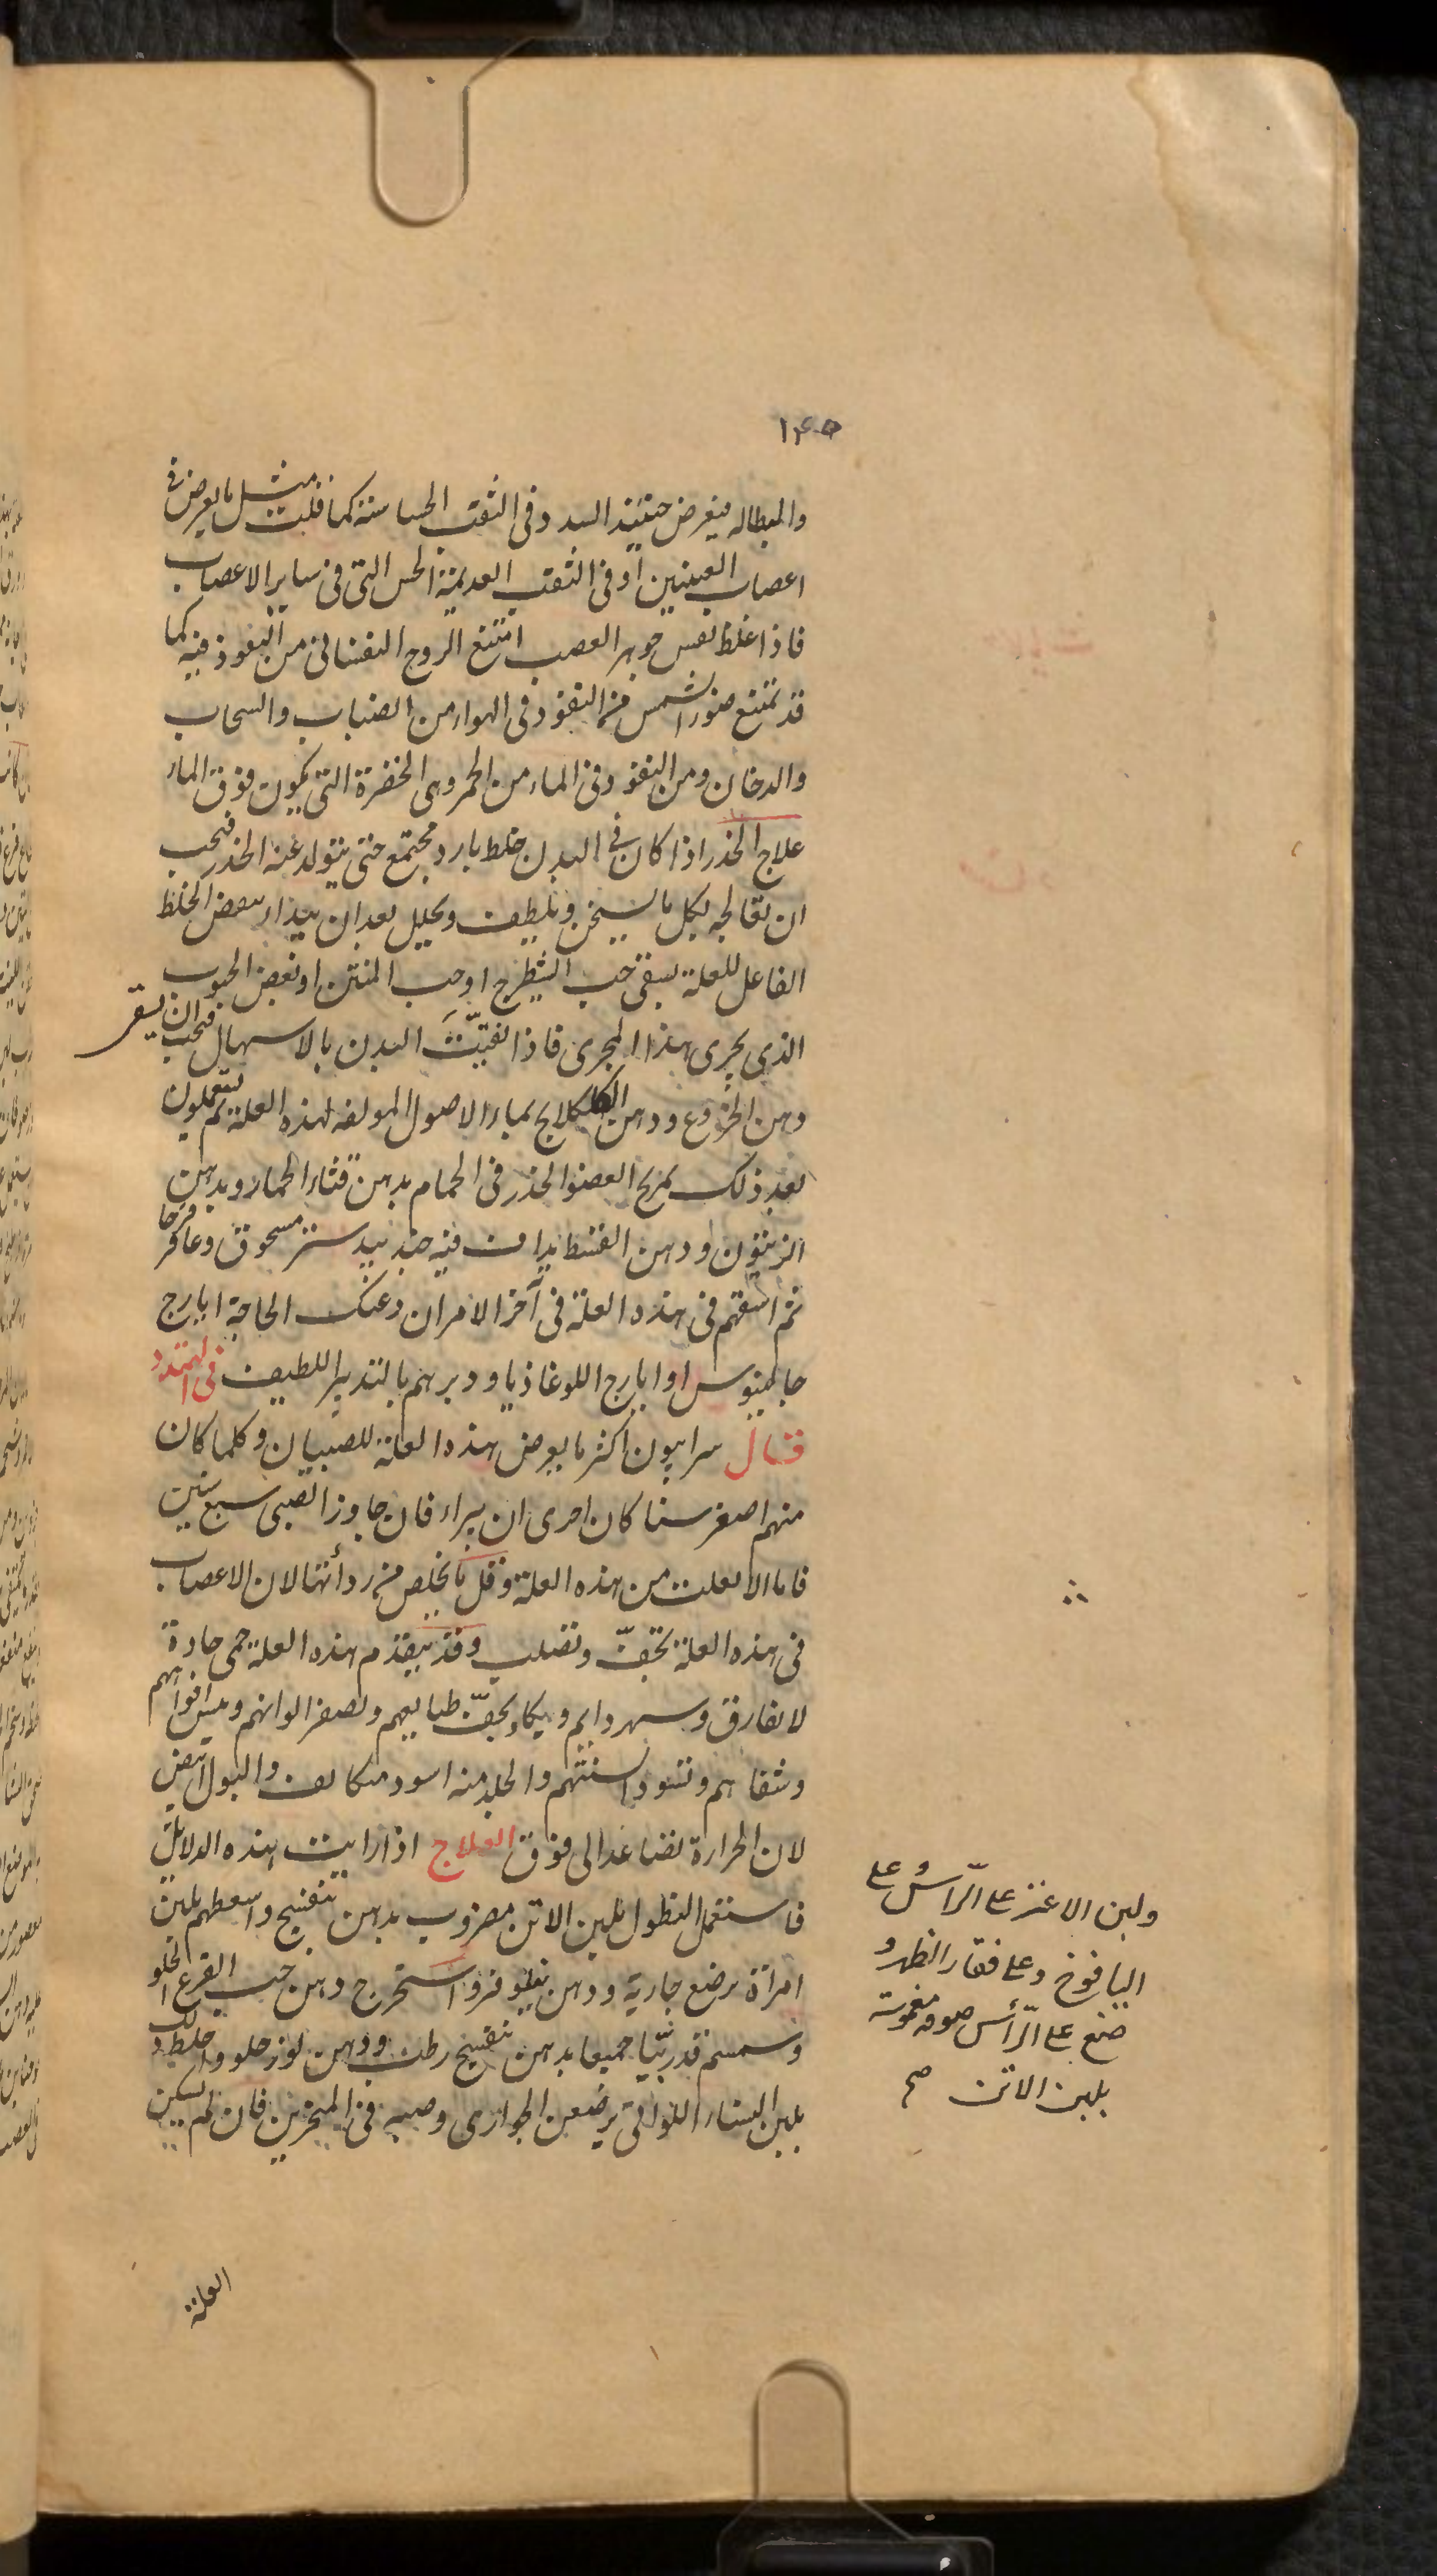 ١٤٥
والبطاله فيعرض حينئذ السدد فى الثقب الحساسة كما قلت مثل ما يعرض فى
اعصاب العينين أو فى الثقب العديمة الحس التى فى ساير الاعصاب
فاذا غلظ نفس جوهر العصب امتنع الروح النفسانى من النفوذ فيه كما
قد تمتنع ضوء الشمس من النفوذ فى الهواء من الضباب والسحاب
والدخان ومن النفوذ فى الماء من الحمر وهى الخضرة التى يكون فوق الماء
علاج الخدر اذا كان فى البدن خلط بارد مجتمع حتى يتولد عنه الخدر فيجب
ان تعالجه بكل ما يسخن ويلطف ويحلل بعد ان يبدا بنفض الخلط
الفاعل للعلة بسقى حب الشيطرج او حب المنتن او بعض الحبوب
الذى يجرى هذا المجرى فاذا نقيّت البدن بالاسهال فيجب ان يسقى
دهن الخروع ودهن الكلكلانج بماء الاصول المولفه لهذه العلة ثم يستعملون
بعد ذلك تمريخ العضو الخدر فى الحمام بدهن قثاء الحمار وبدهن
الزيتون ودهن القسط يداف فيه جندبيدستر مسحوق وعاقرقرحا
ثم اسقهم فى هذه العلة فى آخر الامر ان دعتك الحاجة ايارج
جالينوس او ايارج اللوغاذيا ودبرهم بالتدبير اللطيف فى التمدد
قال سرابيون اكثر ما يعرض هذه العلة للصبيان وكلما كان
منهم اصغر سنا كان احرى ان يبراء فان جاوز الصبى سبع سنين
فاما لا يفلت من هذه العلة وقل ما يخلص من ردأتها لان الاعصاب
فى هذه العلة تجفّ وتصلب وقد يتقدم هذه العلة حمى حادة
لا تفارق وسهر دايم وبكا ويجفّ طبايعهم وتصفر الوانهم وييبس افواههم
وشفاههم وتسود السنتهم والجلد منه اسود متكاثف والبول ابيض
لان الحرارة تصاعد الى فوق العلاج اذا رايت هذه الدلايل
فاستعمل النطول بلبن الاتن مضروب بدهن بنفسج واسعطهم بلبن
امرأة ترضع جارية ودهن نيلوفر واستخرج دهن حب القرع الحلو
وسمسم قد ربّيا جميعا بدهن بنفسج رطب ودهن لوز حلو واخلط ذلك
بلبن النساء اللواتى يرضعن الجوارى وصبه فى المنخرين فان لم يسكن
العلة
ولبن الاعنز على الرّاس على
اليافوخ وعلى فقار الظهر و
ضع على الرّأس صوفه مغموسة
بلبن الاتن صح